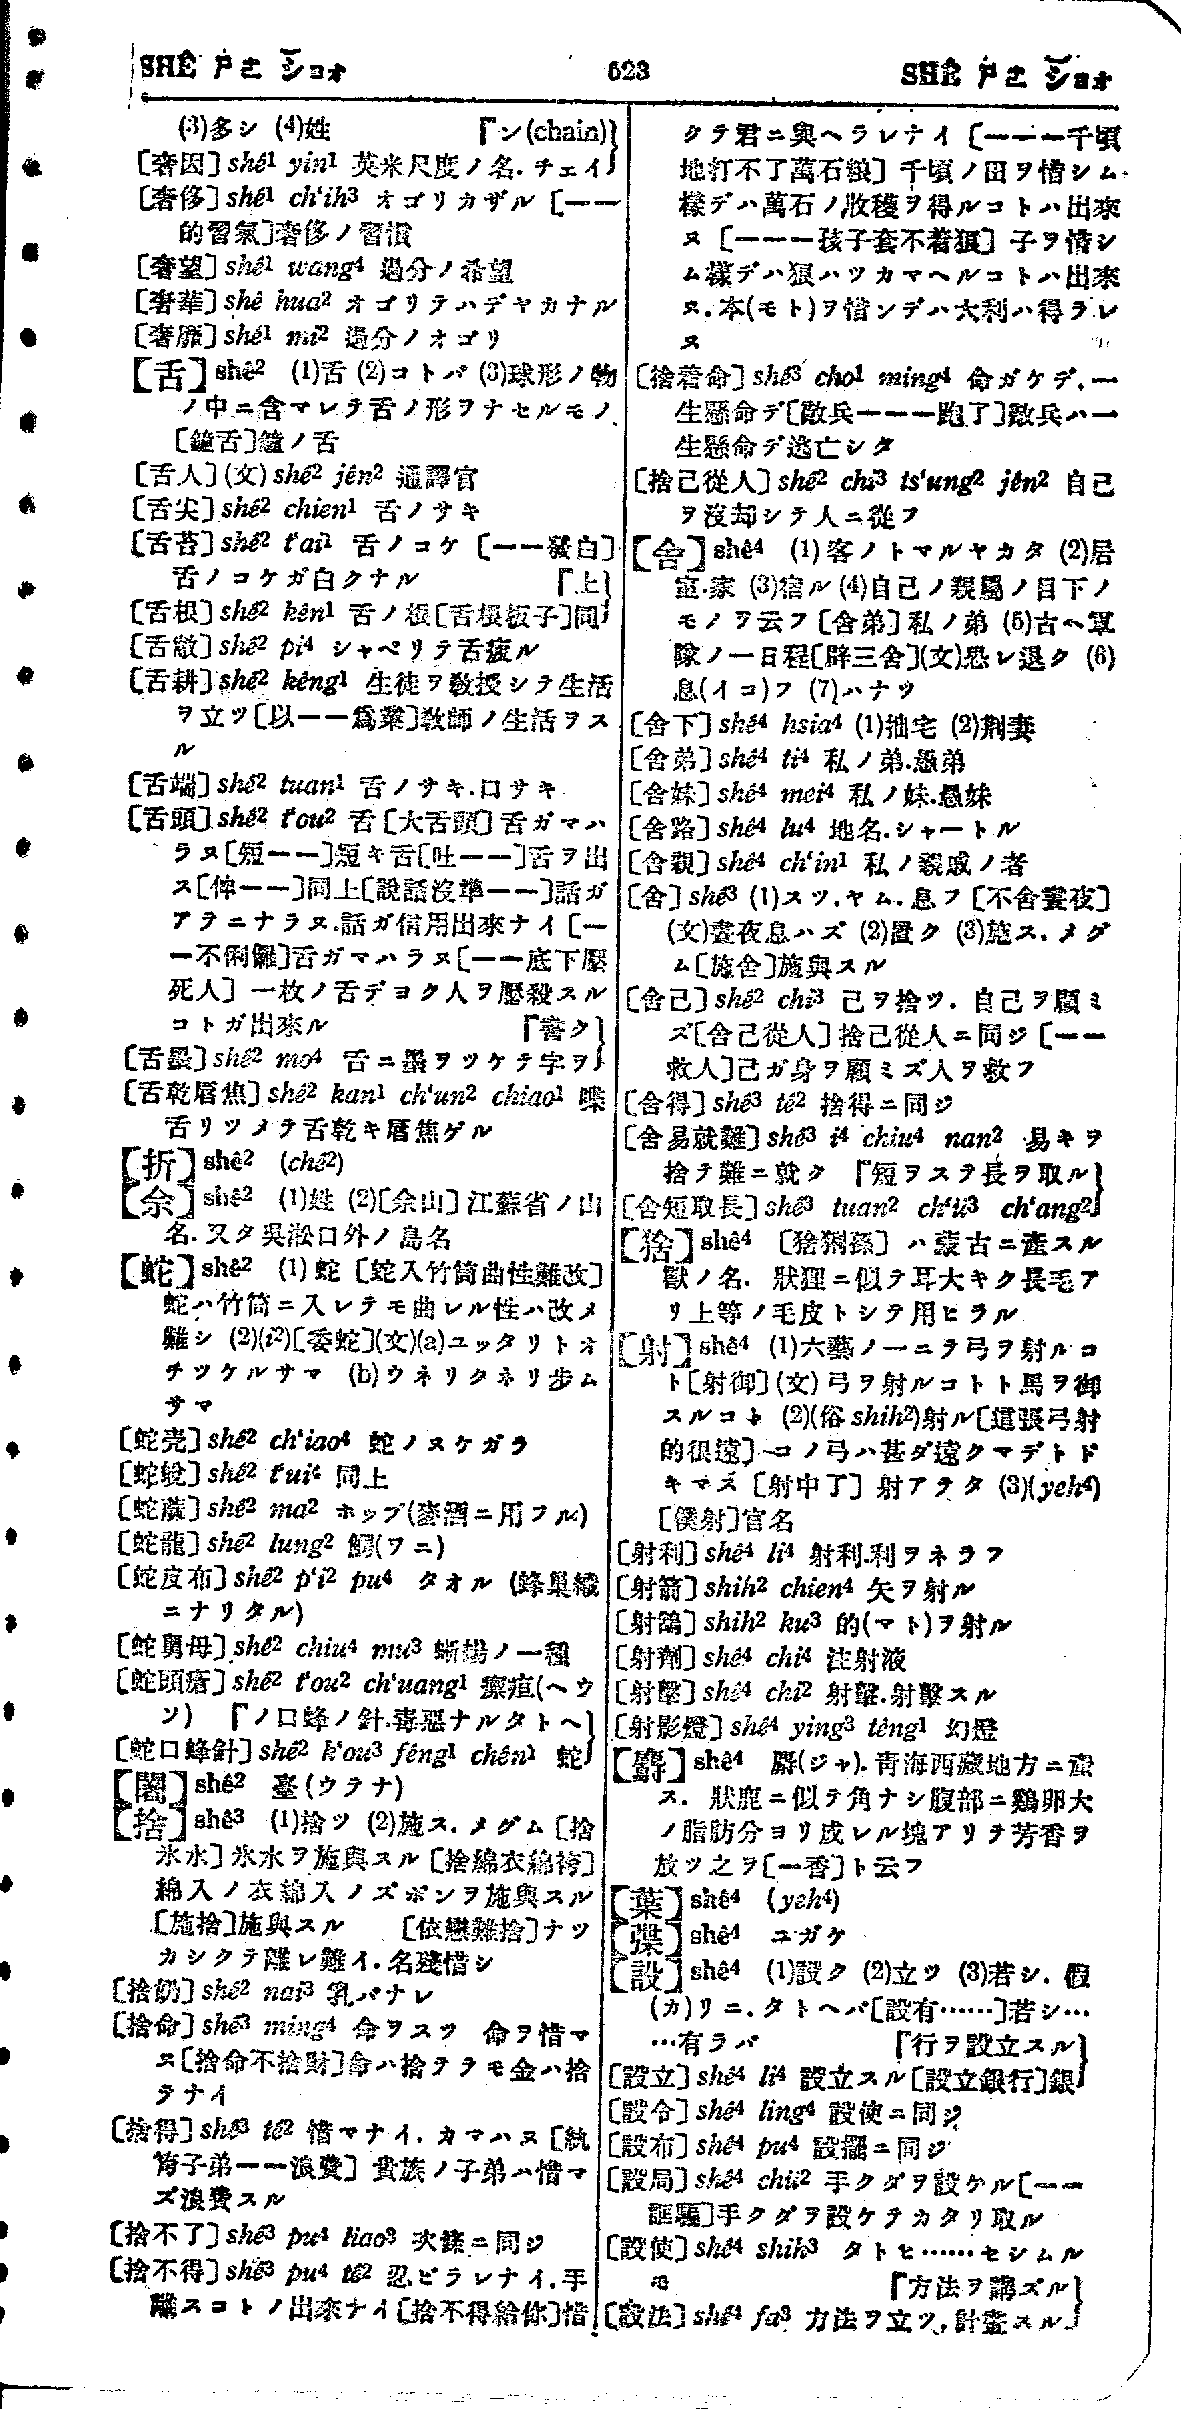 SHÊ ㄕㄜ ショオ 623 SHÊ ㄕㄜ ショオ
(3)多シ (4)姓 『ン(chain)
[奢因] shê¹ yin¹ 英米尺度ノ名. チェイ
[奢侈] shê¹ ch‘ih³ オゴリカザル [——
的習氣]奢侈ノ習慣
[奢望] shê¹ wang⁴ 過分ノ希望
[奢華] shê hua² オゴリテハデヤカナル
[奢靡] shê¹ mi² 過分ノオゴリ
【舌】shê² (1)舌 (2)コトバ (3)球形ノ物
ノ中ニ含マレテ舌ノ形ヲナセルモノ
[鐘舌]鐘ノ舌
[舌人](文) shê² jên² 通譯官
[舌尖] shê² chien¹ 舌ノサキ
[舌苔] shê² t‘ai¹ 舌ノコケ [——發白]
舌ノコケガ白クナル 『上
[舌根] shê² kên¹ 舌ノ根[舌根板子]同
[舌敝] shê² pi⁴ シャベリテ舌疲ル
[舌耕] shê² kêng¹ 生徒ヲ敎授シテ生活
ヲ立ツ[以——爲業]敎師ノ生活ヲス
ル
[舌端] shê² tuan¹ 舌ノサキ.口サキ
[舌頭] shê² t‘ou² 舌 [大舌頭] 舌ガマハ
ラヌ[短——]短キ舌[吐——]舌ヲ出
ス[伸——]同上[說話沒準——]話ガ
アヲニナラヌ.話ガ信用出來ナイ [—
—不俐儸]舌ガマハラヌ[——底下壓
死人] 一枚ノ舌デヨク人ヲ壓殺スル
コトガ出來ル 『書ク
[舌墨] shê² mo⁴ 舌ニ墨ヲツケテ字ヲ
[舌乾唇焦] shê² kan¹ ch‘un² chiao¹ 喋
舌リツメテ舌乾キ唇焦ゲル
【折】shê² (chê²)
【佘】shê² (1)姓 (2)[佘山] 江蘇省ノ山
名. 又タ吳淞口外ノ島名
【蛇】shê² (1)蛇 [蛇入竹筒曲性難改]
蛇ハ竹筒ニ入レテモ曲レル性ハ改メ
難シ (2)(i²)[委蛇](文)(a)ユッタリトオ
チツケルサマ (b)ウネリクネリ步ム
サマ
[蛇壳] shê² ch‘iao⁴ 蛇ノヌケガラ
[蛇蛻] shê² t‘ui⁴ 同上
[蛇蔴] shê² ma² ホップ(麥酒ニ用フル)
[蛇龍] shê² lung² 鰐(ワニ)
[蛇皮布] shê² p‘i² pu⁴ タオル (蜂巢織
ニナリタル)
[蛇舅母] shê² chiu⁴ mu³ 蜥蜴ノ一種
[蛇頭瘡] shê² t‘ou² ch‘uang¹ 瘭疽(ヘウ
ソ) 『ノ口蜂ノ針.毒惡ナルタトヘ
[蛇口蜂針] shê² k‘ou³ fêng¹ chên¹ 蛇
【闍】shê² 臺(ウテナ)
【捨】shê³ (1)捨ツ (2)施ス. メグム [捨
氷水] 氷水ヲ施與スル [捨綿衣綿袴]
綿入ノ衣綿入ノズボンヲ施與スル
[施捨]施與スル [依戀難捨]ナツ
カシクテ離レ難イ.名殘惜シ
[捨奶] shê² nai³ 乳バナレ
[捨命] shê³ ming⁴ 命ヲスツ 命ヲ惜マ
ヌ[捨命不捨財]命ハ捨テラモ金ハ捨
テナイ
[捨得] shê³ tê² 惜マナイ. カマハヌ [紈
袴子弟——浪費] 貴族ノ子弟ハ惜マ
ズ浪費スル
[捨不了] shê³ pu⁴ liao³ 次條ニ同ジ
[捨不得] shê³ pu⁴ tê² 忍ビラレナイ.手
離スコトノ出來ナイ[捨不得給你]惜
クテ君ニ與ヘラレナイ [———千頃
地打不了萬石糧] 千頃ノ田ヲ惜シム
樣デハ萬石ノ收穫ヲ得ルコトハ出來
ヌ [———孩子套不着狼] 子ヲ惜シ
ム樣デハ狼ハツカマヘルコトハ出來
ヌ.本(モト)ヲ惜ンデハ大利ハ得ラレ
ヌ
[捨着命] shê³ cho¹ ming⁴ 命ガケデ.一
生懸命デ[敵兵———跑了]敵兵ハ一
生懸命デ逃亡シタ
[捨己從人] shê² chi³ ts‘ung² jên² 自己
ヲ沒却シテ人ニ從フ
【舍】shê⁴ (1)客ノトマルヤカタ (2)居
室.家 (3)宿ル (4)自己ノ親屬ノ目下ノ
モノヲ云フ [舍弟] 私ノ弟 (5)古ヘ軍
隊ノ一日程[辟三舍](文)恐レ退ク (6)
息(イコ)フ (7)ハナツ
[舍下] shê⁴ hsia⁴ (1)拙宅 (2)荆妻
[舍弟] shê⁴ ti⁴ 私ノ弟.愚弟
[舍妹] shê⁴ mei⁴ 私ノ妹.愚妹
[舍路] shê⁴ lu⁴ 地名.シャートル
[舍親] shê⁴ ch‘in¹ 私ノ親戚ノ者
[舍] shê³ (1)スツ.ヤム. 息フ [不舍晝夜]
(文)晝夜息ハズ (2)置ク (3)施ス. メグ
ム[施舍]施與スル
[舍己] shê² chi³ 己ヲ捨ツ. 自己ヲ顧ミ
ズ[舍己從人] 捨己從人ニ同ジ [——
救人]己ガ身ヲ顧ミズ人ヲ救フ
[舍得] shê³ tê² 捨得ニ同ジ
[舍易就難] shê³ i⁴ chiu⁴ nan² 易キヲ
捨テ難ニ就ク 『短ヲステ長ヲ取ル
[舍短取長] shê³ tuan² ch‘ü³ ch‘ang²
【猞】shê⁴ [猞猁孫] ハ蒙古ニ產スル
獸ノ名. 狀狸ニ似テ耳大キク長毛ア
リ上等ノ毛皮トシテ用ヒラル
【射】shê⁴ (1)六藝ノ一ニテ弓ヲ射ルコ
ト[射御](文) 弓ヲ射ルコトト馬ヲ御
スルコト (2)(俗 shih²)射ル[這張弓射
的很遠] コノ弓ハ甚ダ遠クマデトド
キマス [射中了] 射アテタ (3)(yeh⁴)
[僕射]官名
[射利] shê⁴ li⁴ 射利.利ヲネラフ
[射箭] shih² chien⁴ 矢ヲ射ル
[射鵠] shih² ku³ 的(マト)ヲ射ル
[射劑] shê⁴ chi⁴ 注射液
[射擊] shê⁴ chi² 射擊.射擊スル
[射影燈] shê⁴ ying³ têng¹ 幻燈
【麝】shê⁴ 麝(ジャ). 靑海西藏地方ニ產
ス. 狀鹿ニ似テ角ナシ腹部ニ鷄卵大
ノ脂肪分ヨリ成レル塊アリテ芳香ヲ
放ツ之ヲ[—香]ト云フ
【葉】shê⁴ (yeh⁴)
【弽】shê⁴ ユガケ
【設】shê⁴ (1)設ク (2)立ツ (3)若シ. 假
(カ)リニ.タトヘバ[設有……]若シ…
…有ラバ 『行ヲ設立スル
[設立] shê⁴ li⁴ 設立スル[設立銀行]銀
[設令] shê⁴ ling⁴ 設使ニ同ジ
[設布] shê⁴ pu⁴ 設擺ニ同ジ
[設局] shê⁴ chü² 手クダヲ設ケル[——
誆騙]手クダヲ設ケテカタリ取ル
[設使] shê⁴ shih³ タトヒ……セシムル
モ 『方法ヲ講ズル
[設法] shê⁴ fa³ 方法ヲ立ツ.計畫スル